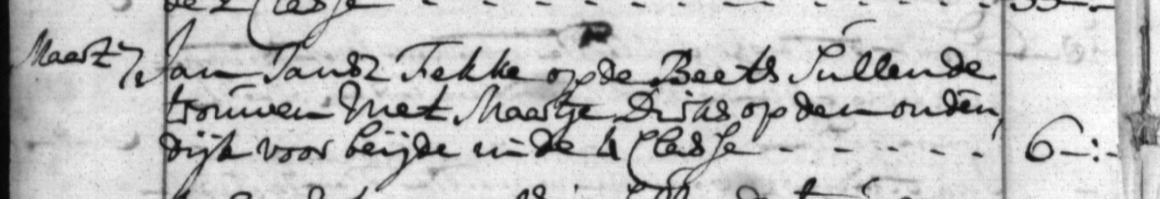 de 2 Classe - - - - - - - - -
Maart 7. Jan Jansz Fekke op de Beets Sullende
trouwen Met Maartje Dirks op den ouden
dijk voor beijde in de 4 Classe - - - - - - 6-:-